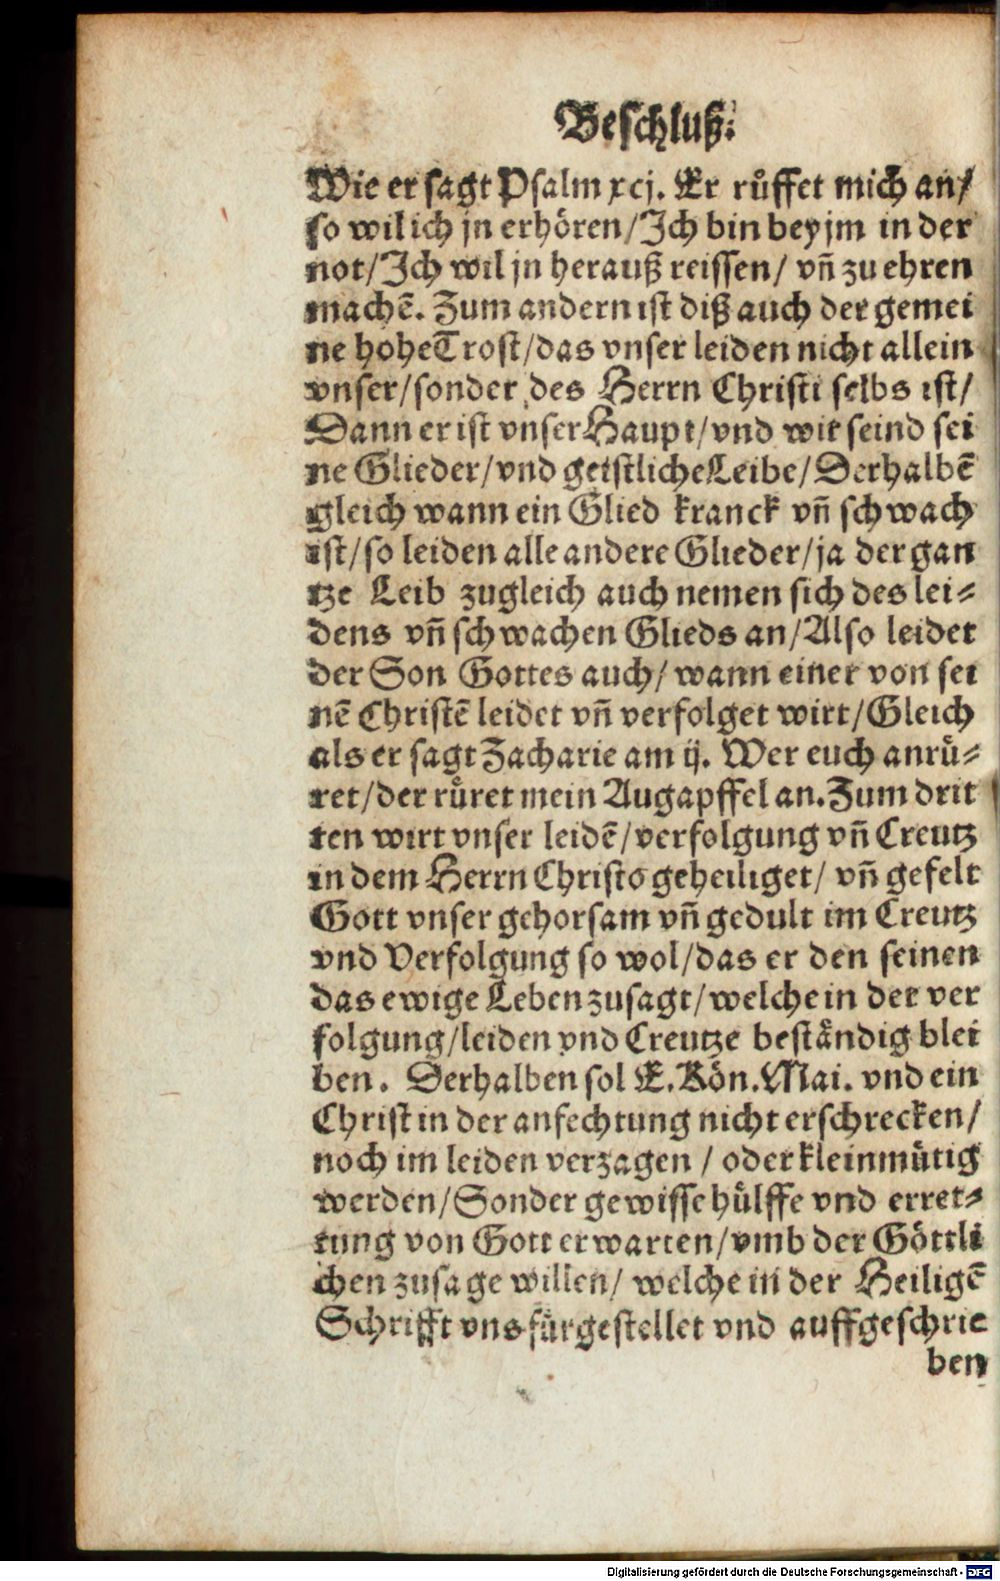 Beschluß.
Wie er sagt Psalm xcj. Er růffet mich an/
so wil ich jn erhören/Ich bin bey jm in der
not/Ich wil jn herauß reissen/ vñ zu ehren
machē. Zum andern ist diß auch der gemei
ne hohe Trost/das vnser leiden nicht allein
vnser/sonder des Herrn Christi selbs ist/
Dann er ist vnser Haupt/vnd wir seind sei
ne Glieder/vnd geistliche Leibe/Derhalbē
gleich wann ein Glied kranck vñ schwach
ist/so leiden alle andere Glieder/ja der gan
tze Leib zugleich auch nemen sich des lei-
dens vñ schwachen Glieds an/Also leidet
der Son Gottes auch/wann einer von sei
nē Christē leidet vñ verfolget wirt/Gleich
als er sagt Zacharie am ij. Wer euch anrů-
ret/der růret mein Augapffel an. Zum drit
ten wirt vnser leidē/verfolgung vñ Creutz
in dem Herrn Christo geheiliget/ vñ gefelt
Gott vnser gehorsam vñ gedult im Creutz
vnd Verfolgung so wol/das er den seinen
das ewige Leben zusagt/welche in der ver
folgung/leiden vnd Creutze beståndig blei
ben. Derhalben sol E. Kön. Mai. vnd ein
Christ in der anfechtung nicht erschrecken/
noch im leiden verzagen / oder kleinmůtig
werden/Sonder gewisse hůlffe vnd erret-
tung von Gott erwarten/vmb der Göttli
chen zusage willen/ welche in der Heiligē
Schrifft vns fůrgestellet vnd auffgeschrie
ben
Digitalisierung gefördert durch die Deutsche Forschungsgemeinschaft - DFG